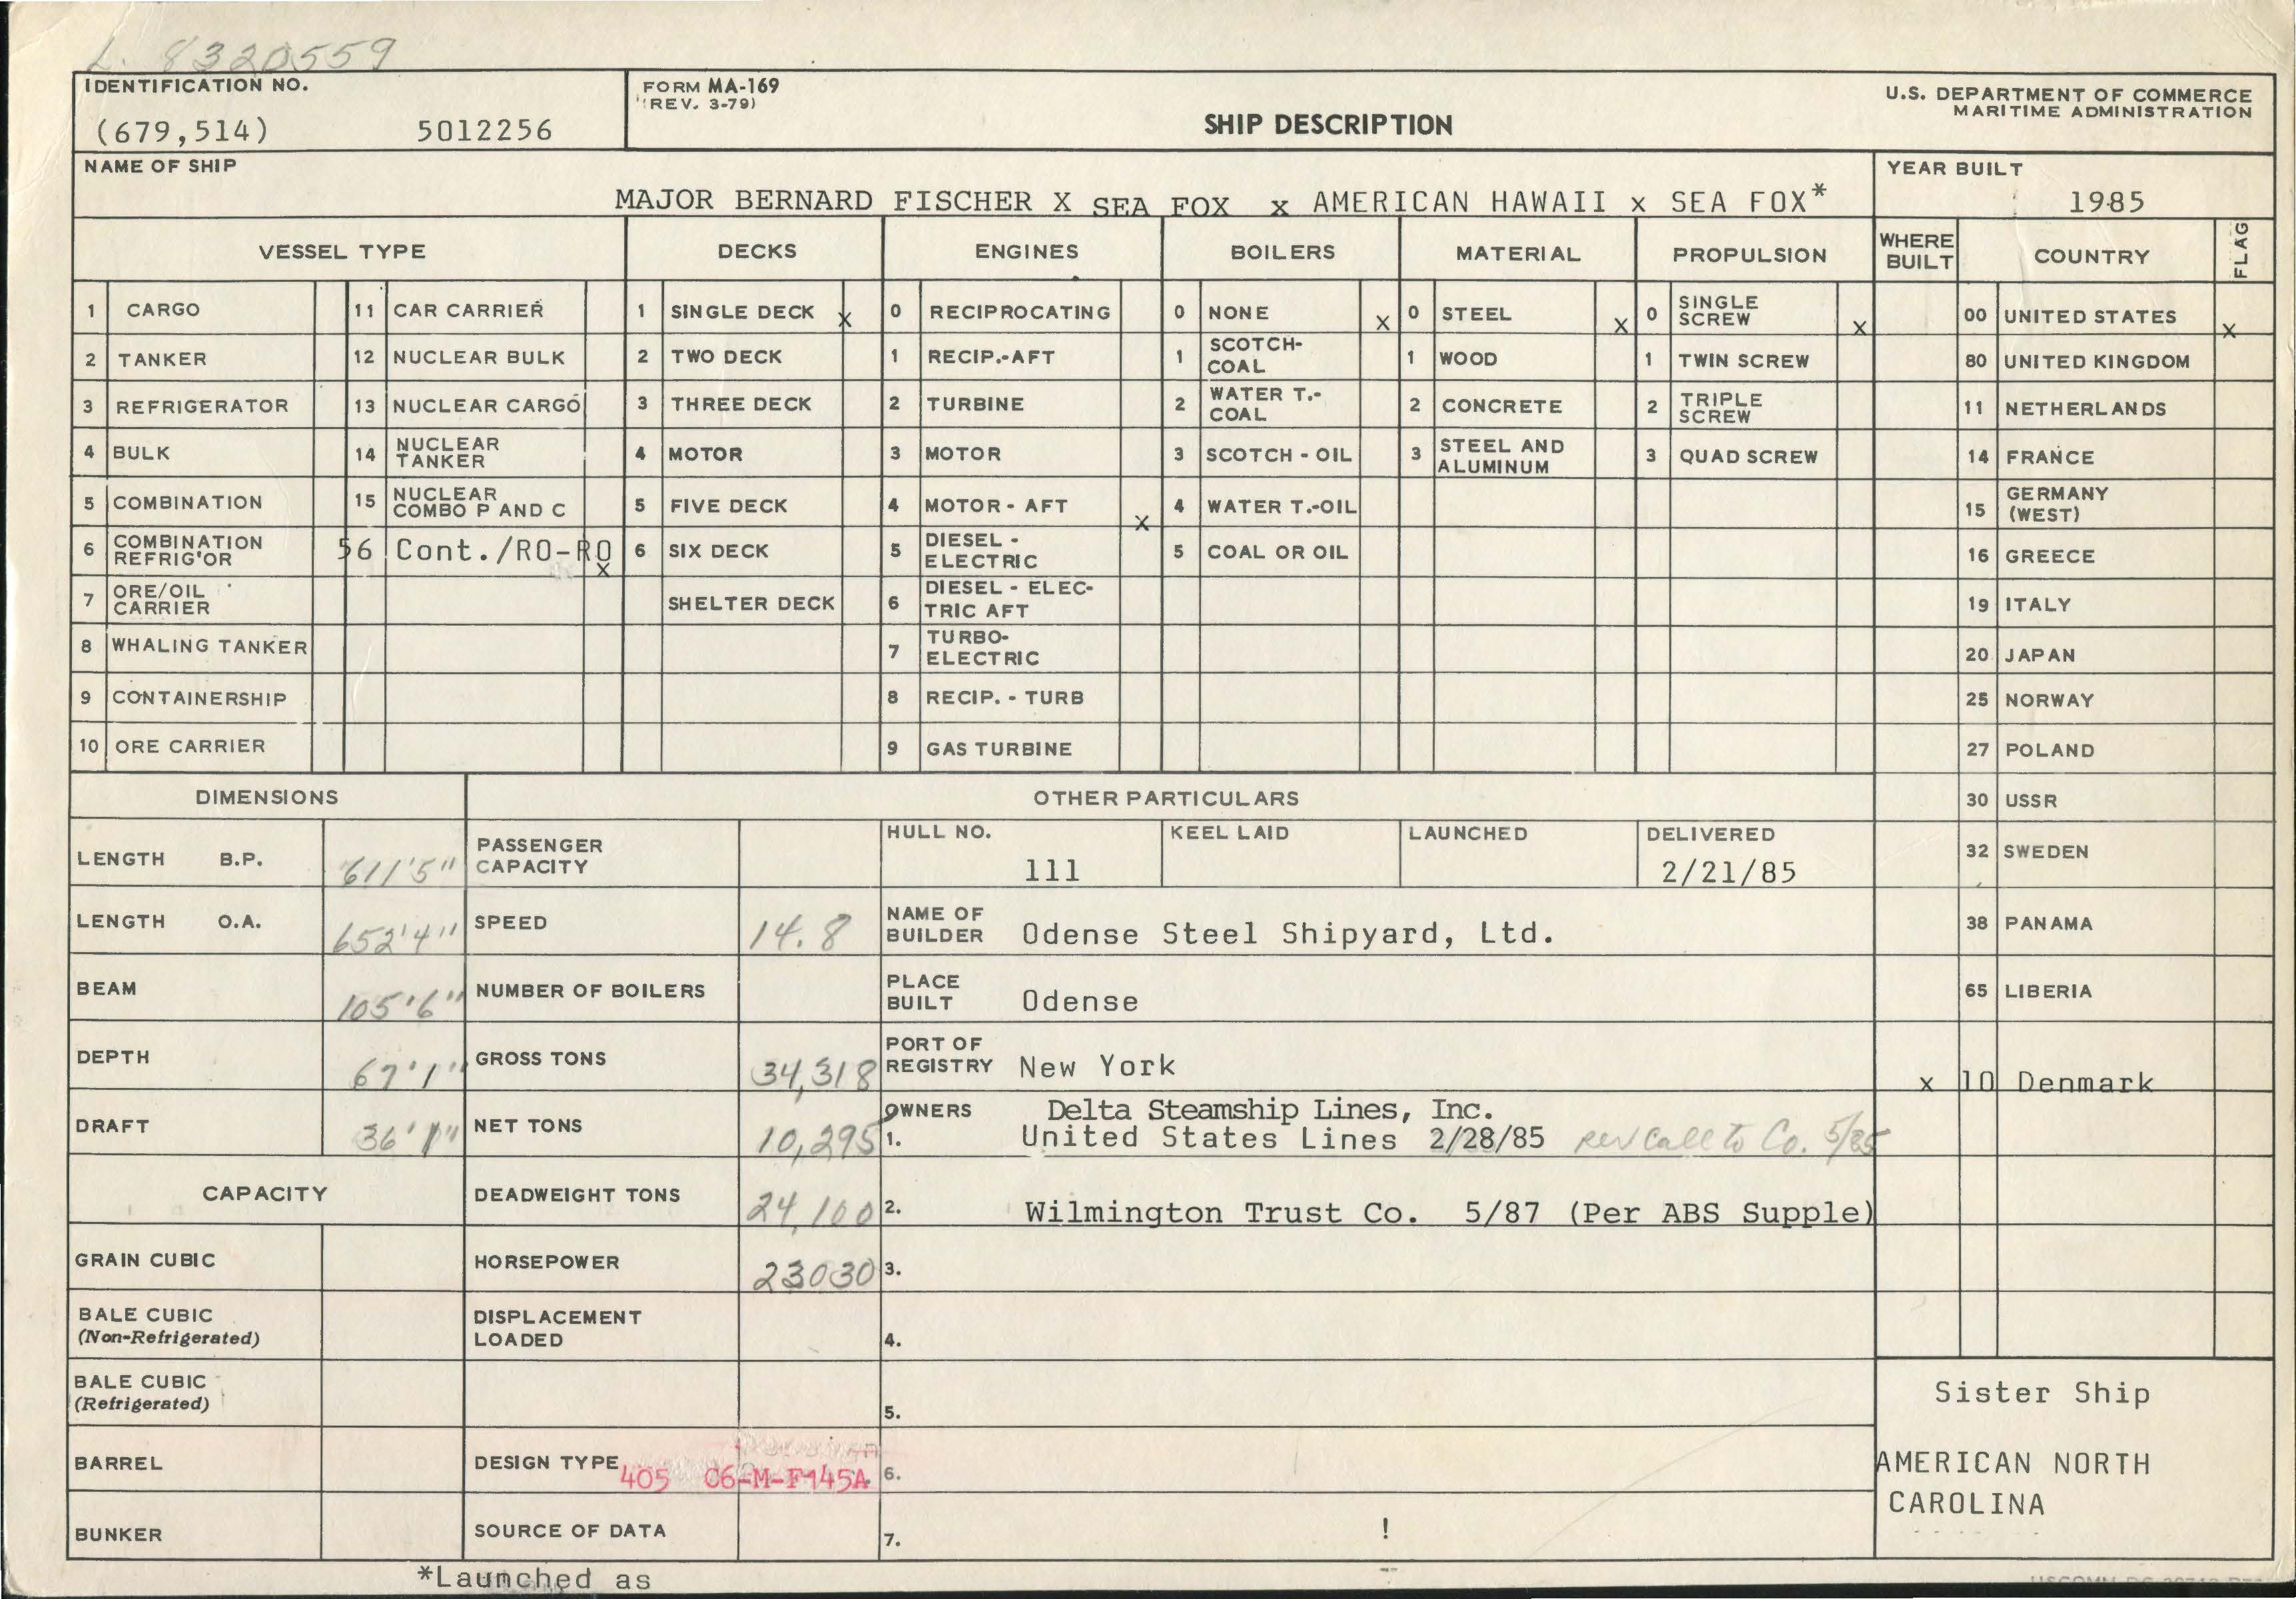 L. 8320559
IDENTIFICATION NO.
(679,514) 5012256
FORM MA-169
(REV. 3-79)
SHIP DESCRIPTION
U.S. DEPARTMENT OF COMMERCE
MARITIME ADMINISTRATION
NAME OF SHIP
MAJOR BERNARD FISCHER X SEA FOX x AMERICAN HAWAII x SEA FOX*
YEAR BUILT
1985
VESSEL TYPE DECKS ENGINES BOILERS MATERIAL PROPULSION WHERE BUILT COUNTRY FLAG
1 CARGO 11 CAR CARRIER 1 SINGLE DECK x 0 RECIPROCATING 0 NONE x 0 STEEL x 0 SINGLE SCREW x 00 UNITED STATES x
2 TANKER 12 NUCLEAR BULK 2 TWO DECK 1 RECIP.-AFT 1 SCOTCH-COAL 1 WOOD 1 TWIN SCREW 80 UNITED KINGDOM
3 REFRIGERATOR 13 NUCLEAR CARGO 3 THREE DECK 2 TURBINE 2 WATER T.-COAL 2 CONCRETE 2 TRIPLE SCREW 11 NETHERLANDS
4 BULK 14 NUCLEAR TANKER 4 MOTOR 3 MOTOR 3 SCOTCH - OIL 3 STEEL AND ALUMINUM 3 QUAD SCREW 14 FRANCE
5 COMBINATION 15 NUCLEAR COMBO P AND C 5 FIVE DECK 4 MOTOR - AFT x 4 WATER T.-OIL 15 GERMANY (WEST)
6 COMBINATION REFRIG'OR 56 Cont./RO-RO x 6 SIX DECK 5 DIESEL - ELECTRIC 5 COAL OR OIL 16 GREECE
7 ORE/OIL CARRIER SHELTER DECK 6 DIESEL - ELEC-TRIC AFT 19 ITALY
8 WHALING TANKER 7 TURBO-ELECTRIC 20 JAPAN
9 CONTAINERSHIP 8 RECIP. - TURB 25 NORWAY
10 ORE CARRIER 9 GAS TURBINE 27 POLAND
DIMENSIONS OTHER PARTICULARS 30 USSR
LENGTH B.P. 611'5" PASSENGER CAPACITY HULL NO. 111 KEEL LAID LAUNCHED DELIVERED 2/21/85 32 SWEDEN
LENGTH O.A. 652'4" SPEED 14.8 NAME OF BUILDER Odense Steel Shipyard, Ltd. 38 PANAMA
BEAM 105'6" NUMBER OF BOILERS PLACE BUILT Odense 65 LIBERIA
DEPTH 67'1" GROSS TONS 34,318 PORT OF REGISTRY New York x 10 Denmark
DRAFT 36'1" NET TONS 10,295 OWNERS Delta Steamship Lines, Inc.
1. United States Lines 2/28/85 per call to Co. 5/85
CAPACITY DEADWEIGHT TONS 24,100 2. Wilmington Trust Co. 5/87 (Per ABS Supple)
GRAIN CUBIC HORSEPOWER 23030 3.
BALE CUBIC (Non-Refrigerated) DISPLACEMENT LOADED 4.
BALE CUBIC (Refrigerated) 5.
Sister Ship
AMERICAN NORTH
CAROLINA
BARREL DESIGN TYPE 405 C6-M-F145A 6.
BUNKER SOURCE OF DATA 7. !
*Launched as